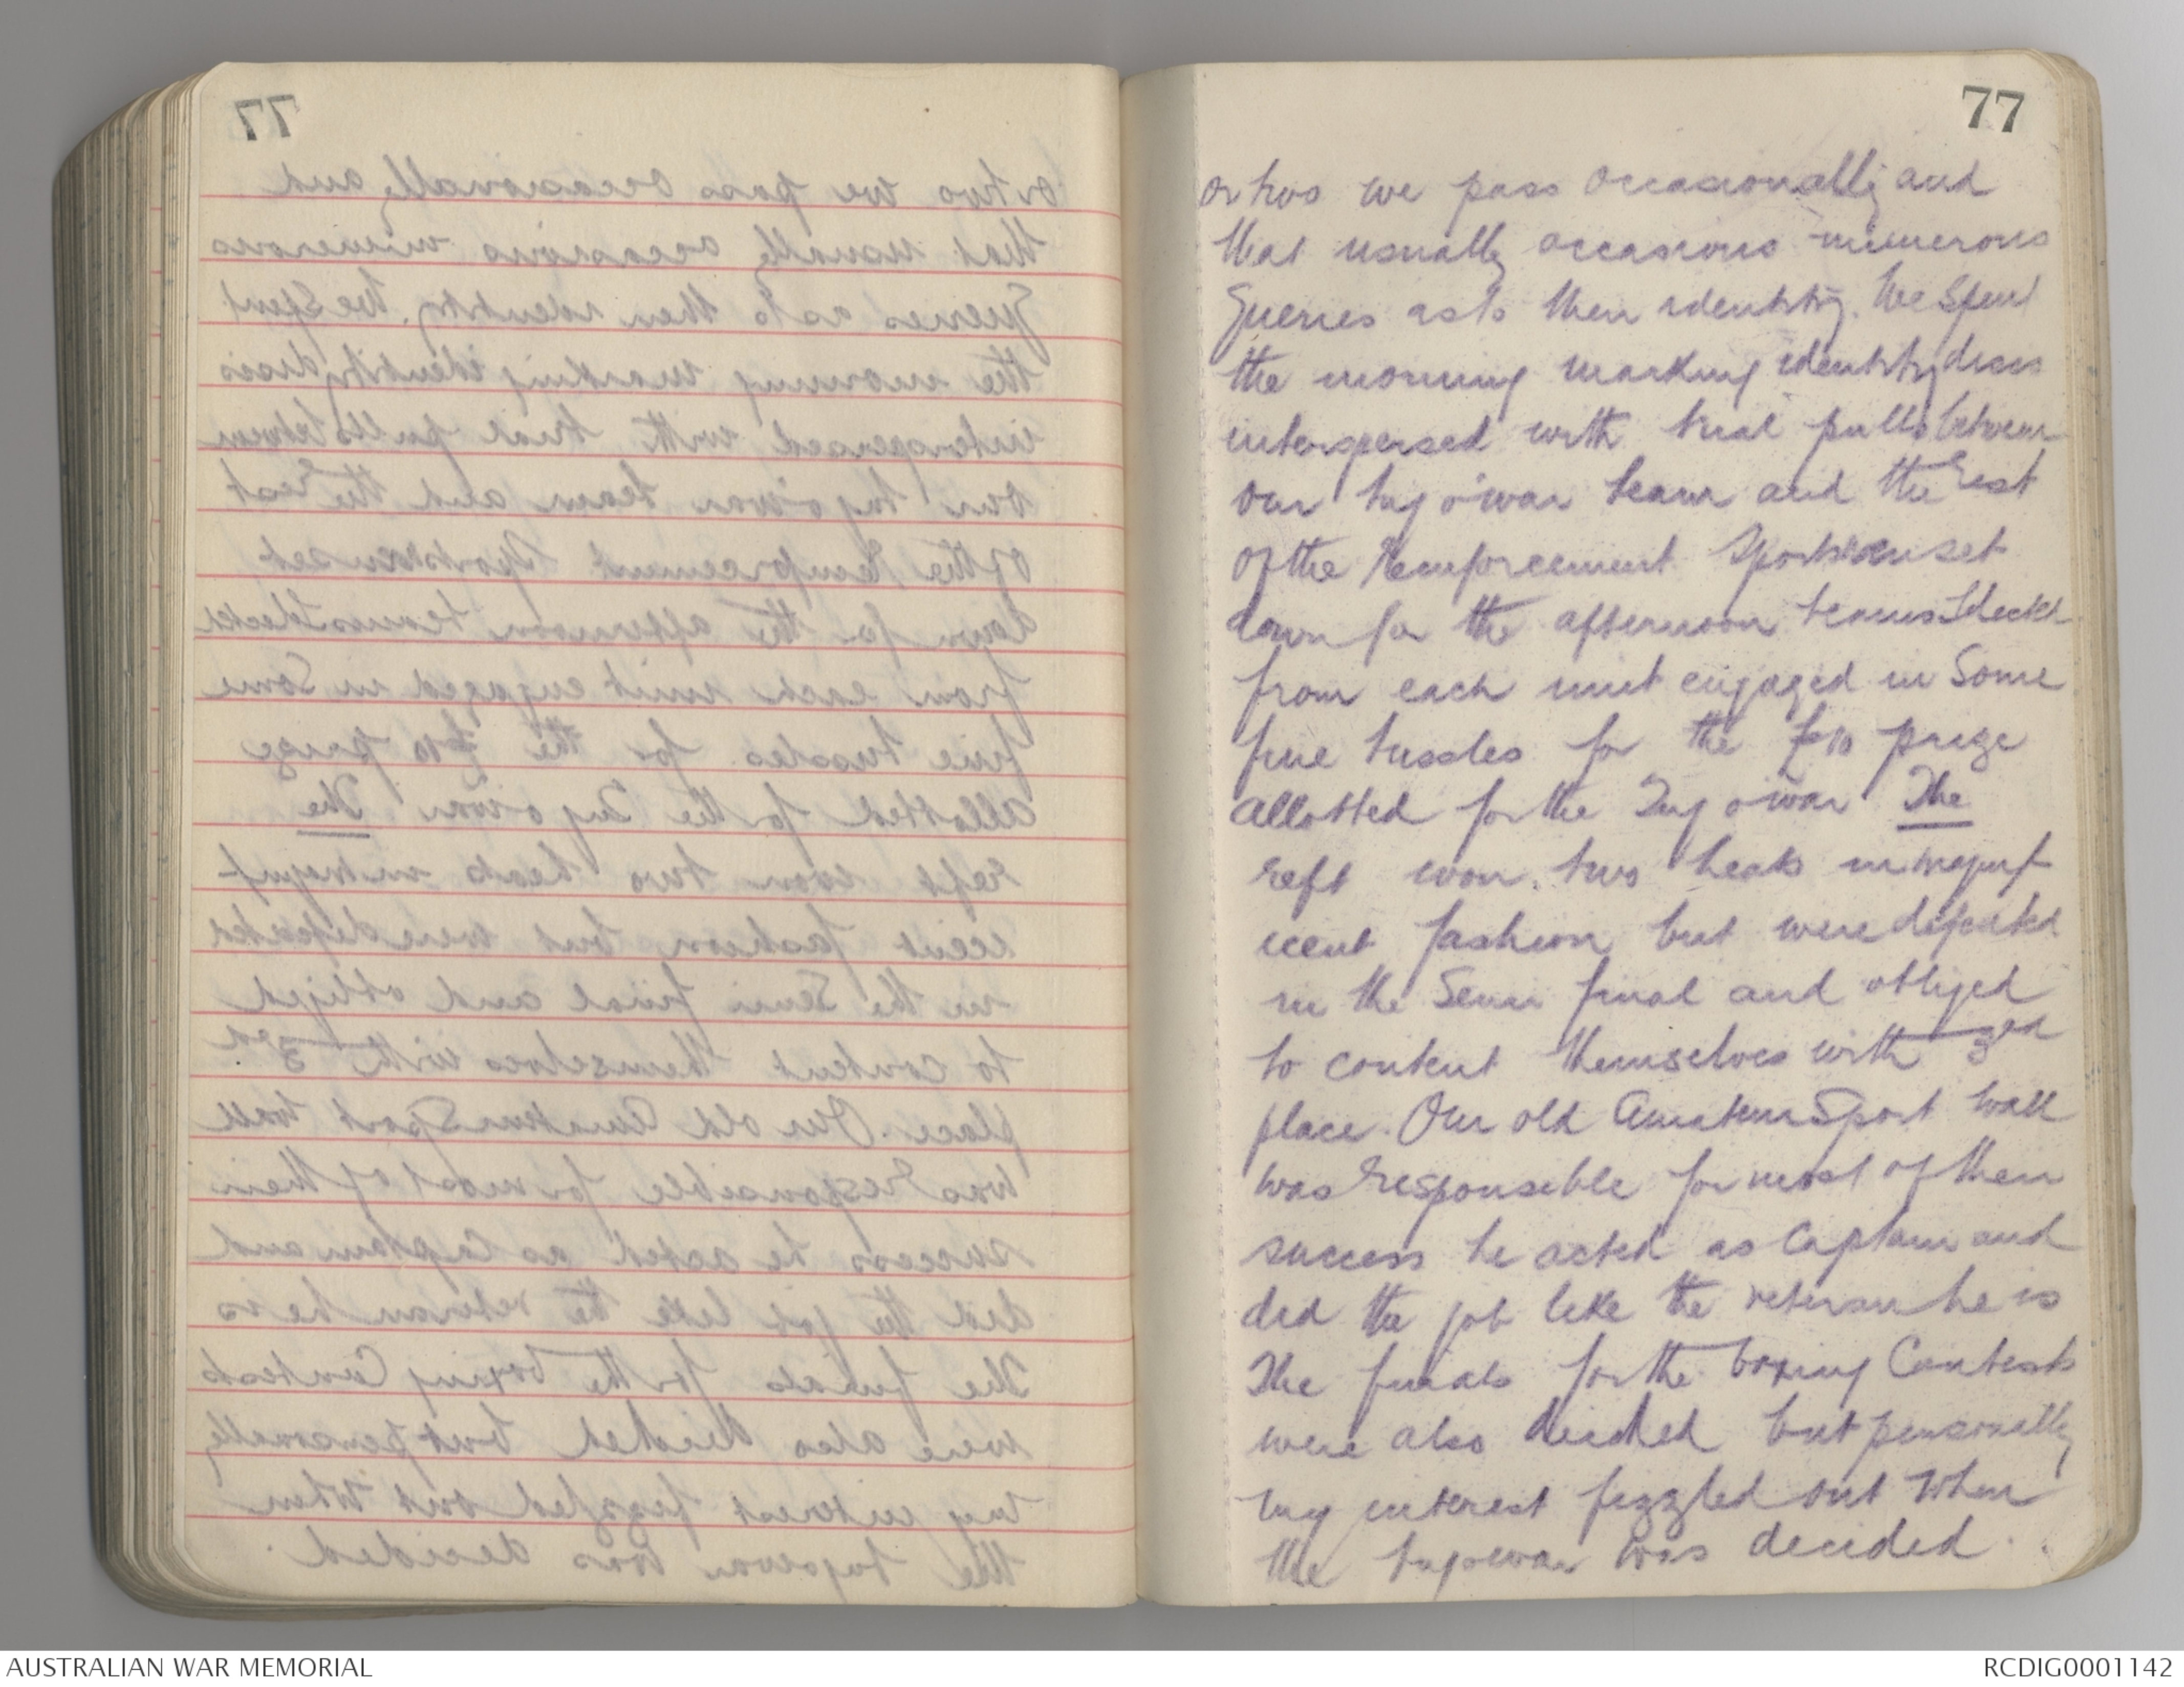 77
77
or two we pass occasionally and
that usually occasions numerous
queries as to their identity. We spent
the morning marking identity discs
interspersed with trial pulls between
our tug o'war team and the rest
of the Reinforcement Sports were set
down for the afternoon teams selected
from each unit engaged in some
fine tussles for the £10 prize
allotted for the Tug o'war The
reft won two heats in magnif-
icent fashion but were defeated
in the Semi final and obliged
to content themselves with 3rd
place. Our old Amateur Sport
was responsible for most of their
success he acted as Captain and
did the job like the veteran he is
The finals for the boxing Contests
were also decided but personally
my interest fizzled out when
the tugowar was decided.
AUSTRALIAN WAR MEMORIAL
RCDIG0001142